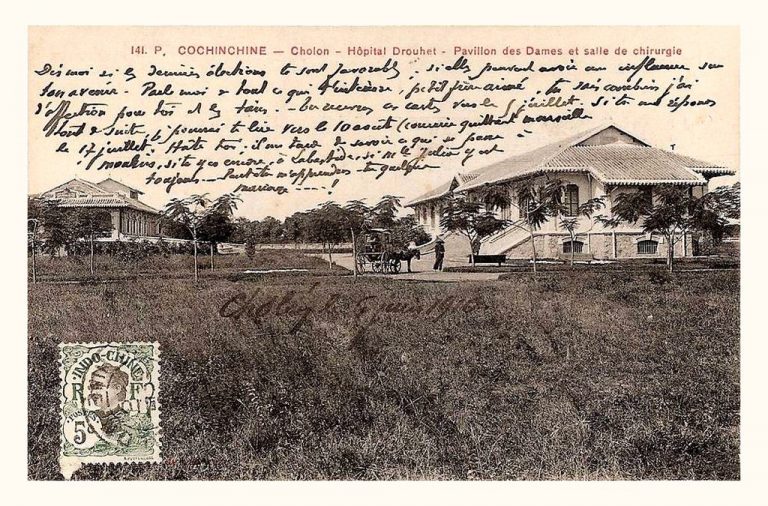 141. P. COCHINCHINE — Cholon - Hôpital Drouhet - Pavillon des Dames et salle de chirurgie
Dis moi si les dernières élections te sont favorables, si elles peuvent avoir une influence sur
ton avenir. Parle moi de tout ce qui t'intéresse, petit frère aimé, tu sais combien j'ai
d'affection pour toi et les tiens. Tu recevras ces cartes vers le 5 juillet. Si tu me réponds
tout de suite, je pourrai te lire vers le 10 août (courrier quittant Marseille
le 17 juillet. Hâte toi. Il me tarde de savoir ce qui se passe à
Moulins, si tu y es encore, à Labastide, si M. le y est
toujours - Peut-être m'apprendras tu quelque
mariage --- !
Cholon le 6 juin 1910
INDO-CHINE
R F
5